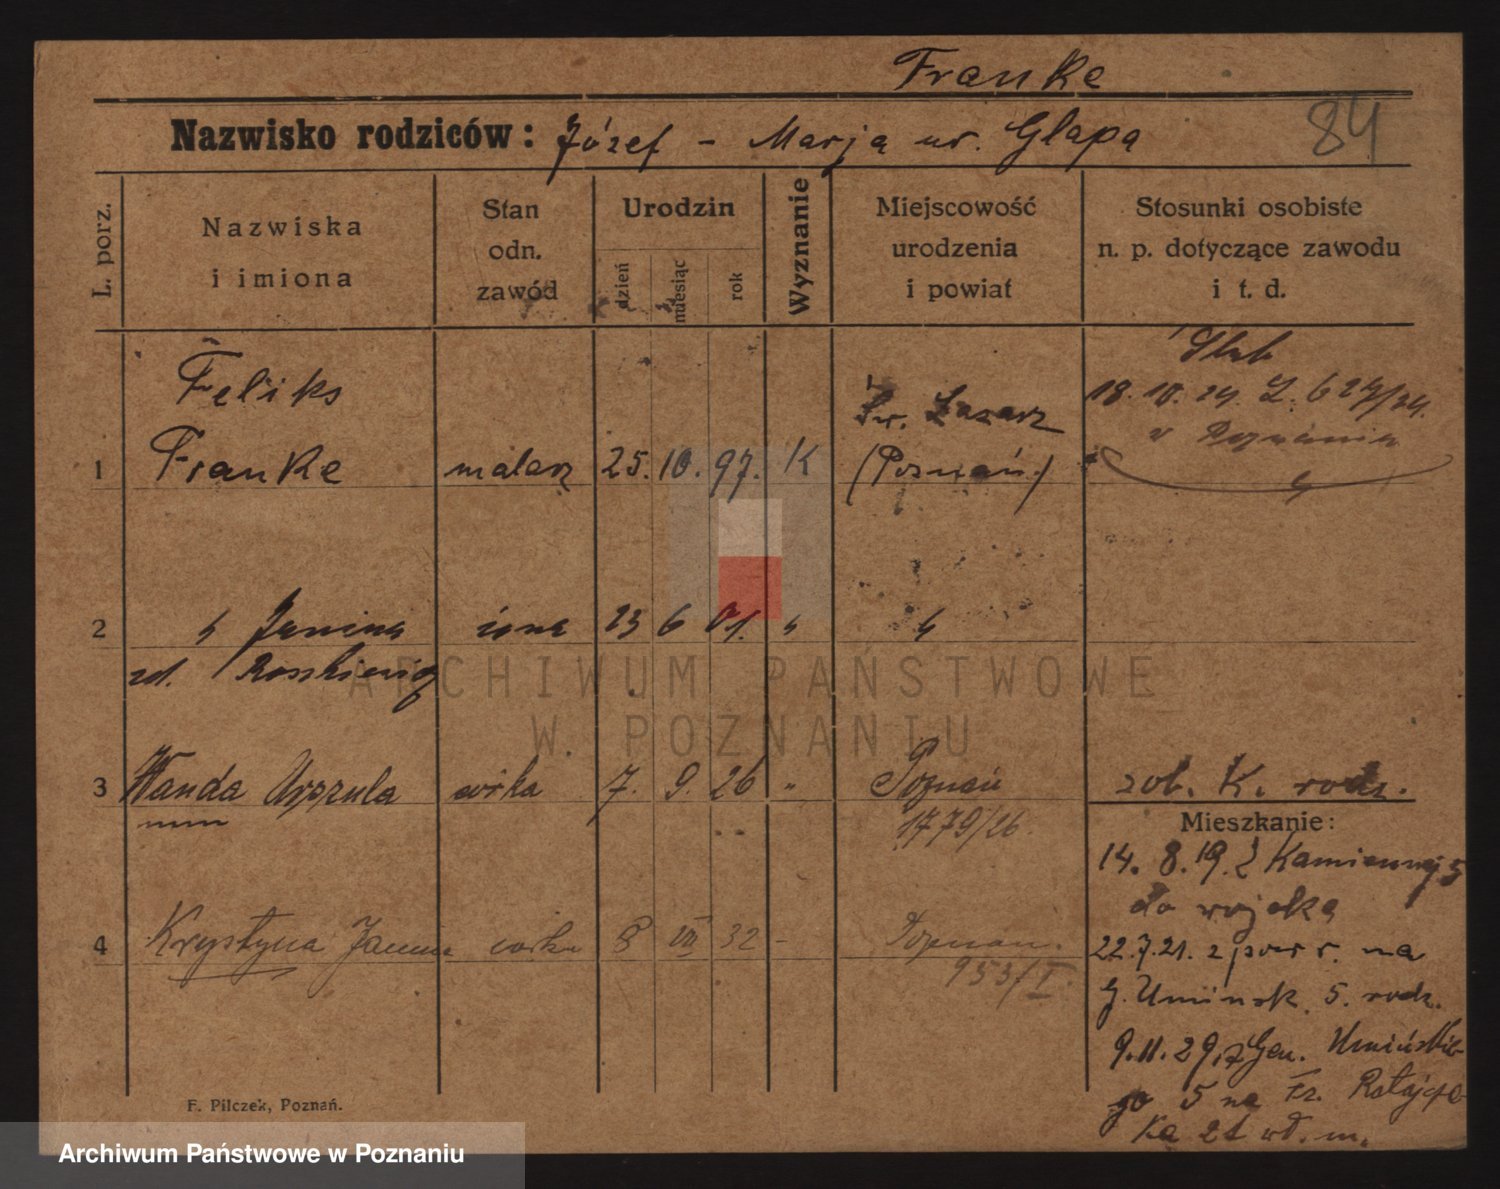 Franke
84
Nazwisko rodziców: Józef - Marja ur. Glapa
L. porz.
Nazwiska i imiona
Stan odn. zawód
Urodzin
dzień
miesiąc
rok
Wyznanie
Miejscowość urodzenia i powiat
Stosunki osobiste n. p. dotyczące zawodu i t. d.
Feliks
Ślub
Św. Łazarz
18. 10. 24. L. 624/24.
w Poznaniu
1 Franke malarz 25. 10. 97. K (Poznań)
2 " Janina żona 23 6 01. " "
zd.
ARCHIWUM PAŃSTWOWE
W POZNANIU
3 Wanda Urszula córka 7. 9. 26 " Poznań zob. K. rodz.
1779/26.
Mieszkanie:
14. 8. 19. z Kamiennej 5
do wojska
4 Krystyna Janina córka 8 VII 32 - Poznań.
953/I.
22.7.21. z powr. na
G. Umińsk. 5. rodz.
9.11.29. z Gen. Umińskie-
go 5 na Fr. Ratajcza-
ka 21 wł. m.
F. Pilczek, Poznań.
Archiwum Państwowe w Poznaniu